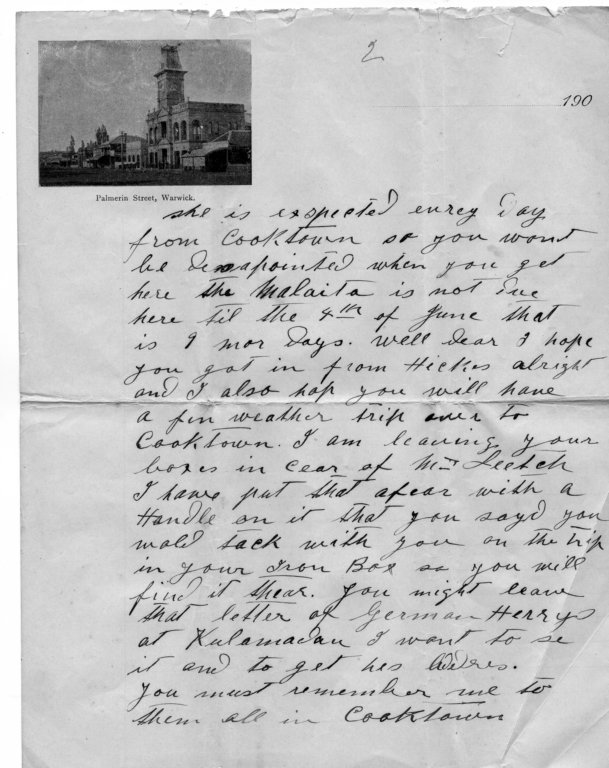 2
190
Palmerin Street, Warwick.
she is expected evrey Day
from Cooktown so you wont
be desapointed when you get
here the Malaita is not due
here til the 4th of June that
is 9 mor days. Well dear I hope
you got in from Hickes alright
and I also hop you will have
a fin weather trip over to
Cooktown. I am leaving your
boxes in cear of Mrs Leetch
I have put that afear with a
Handle on it that you sayd you
wold tack with you on the trip
in your Iron Box so you will
find it thear. You might leave
that letter of German Herrys
at Kulamadau I want to se
it and to get hes Addres.
You must remember me to
them all in Cooktown